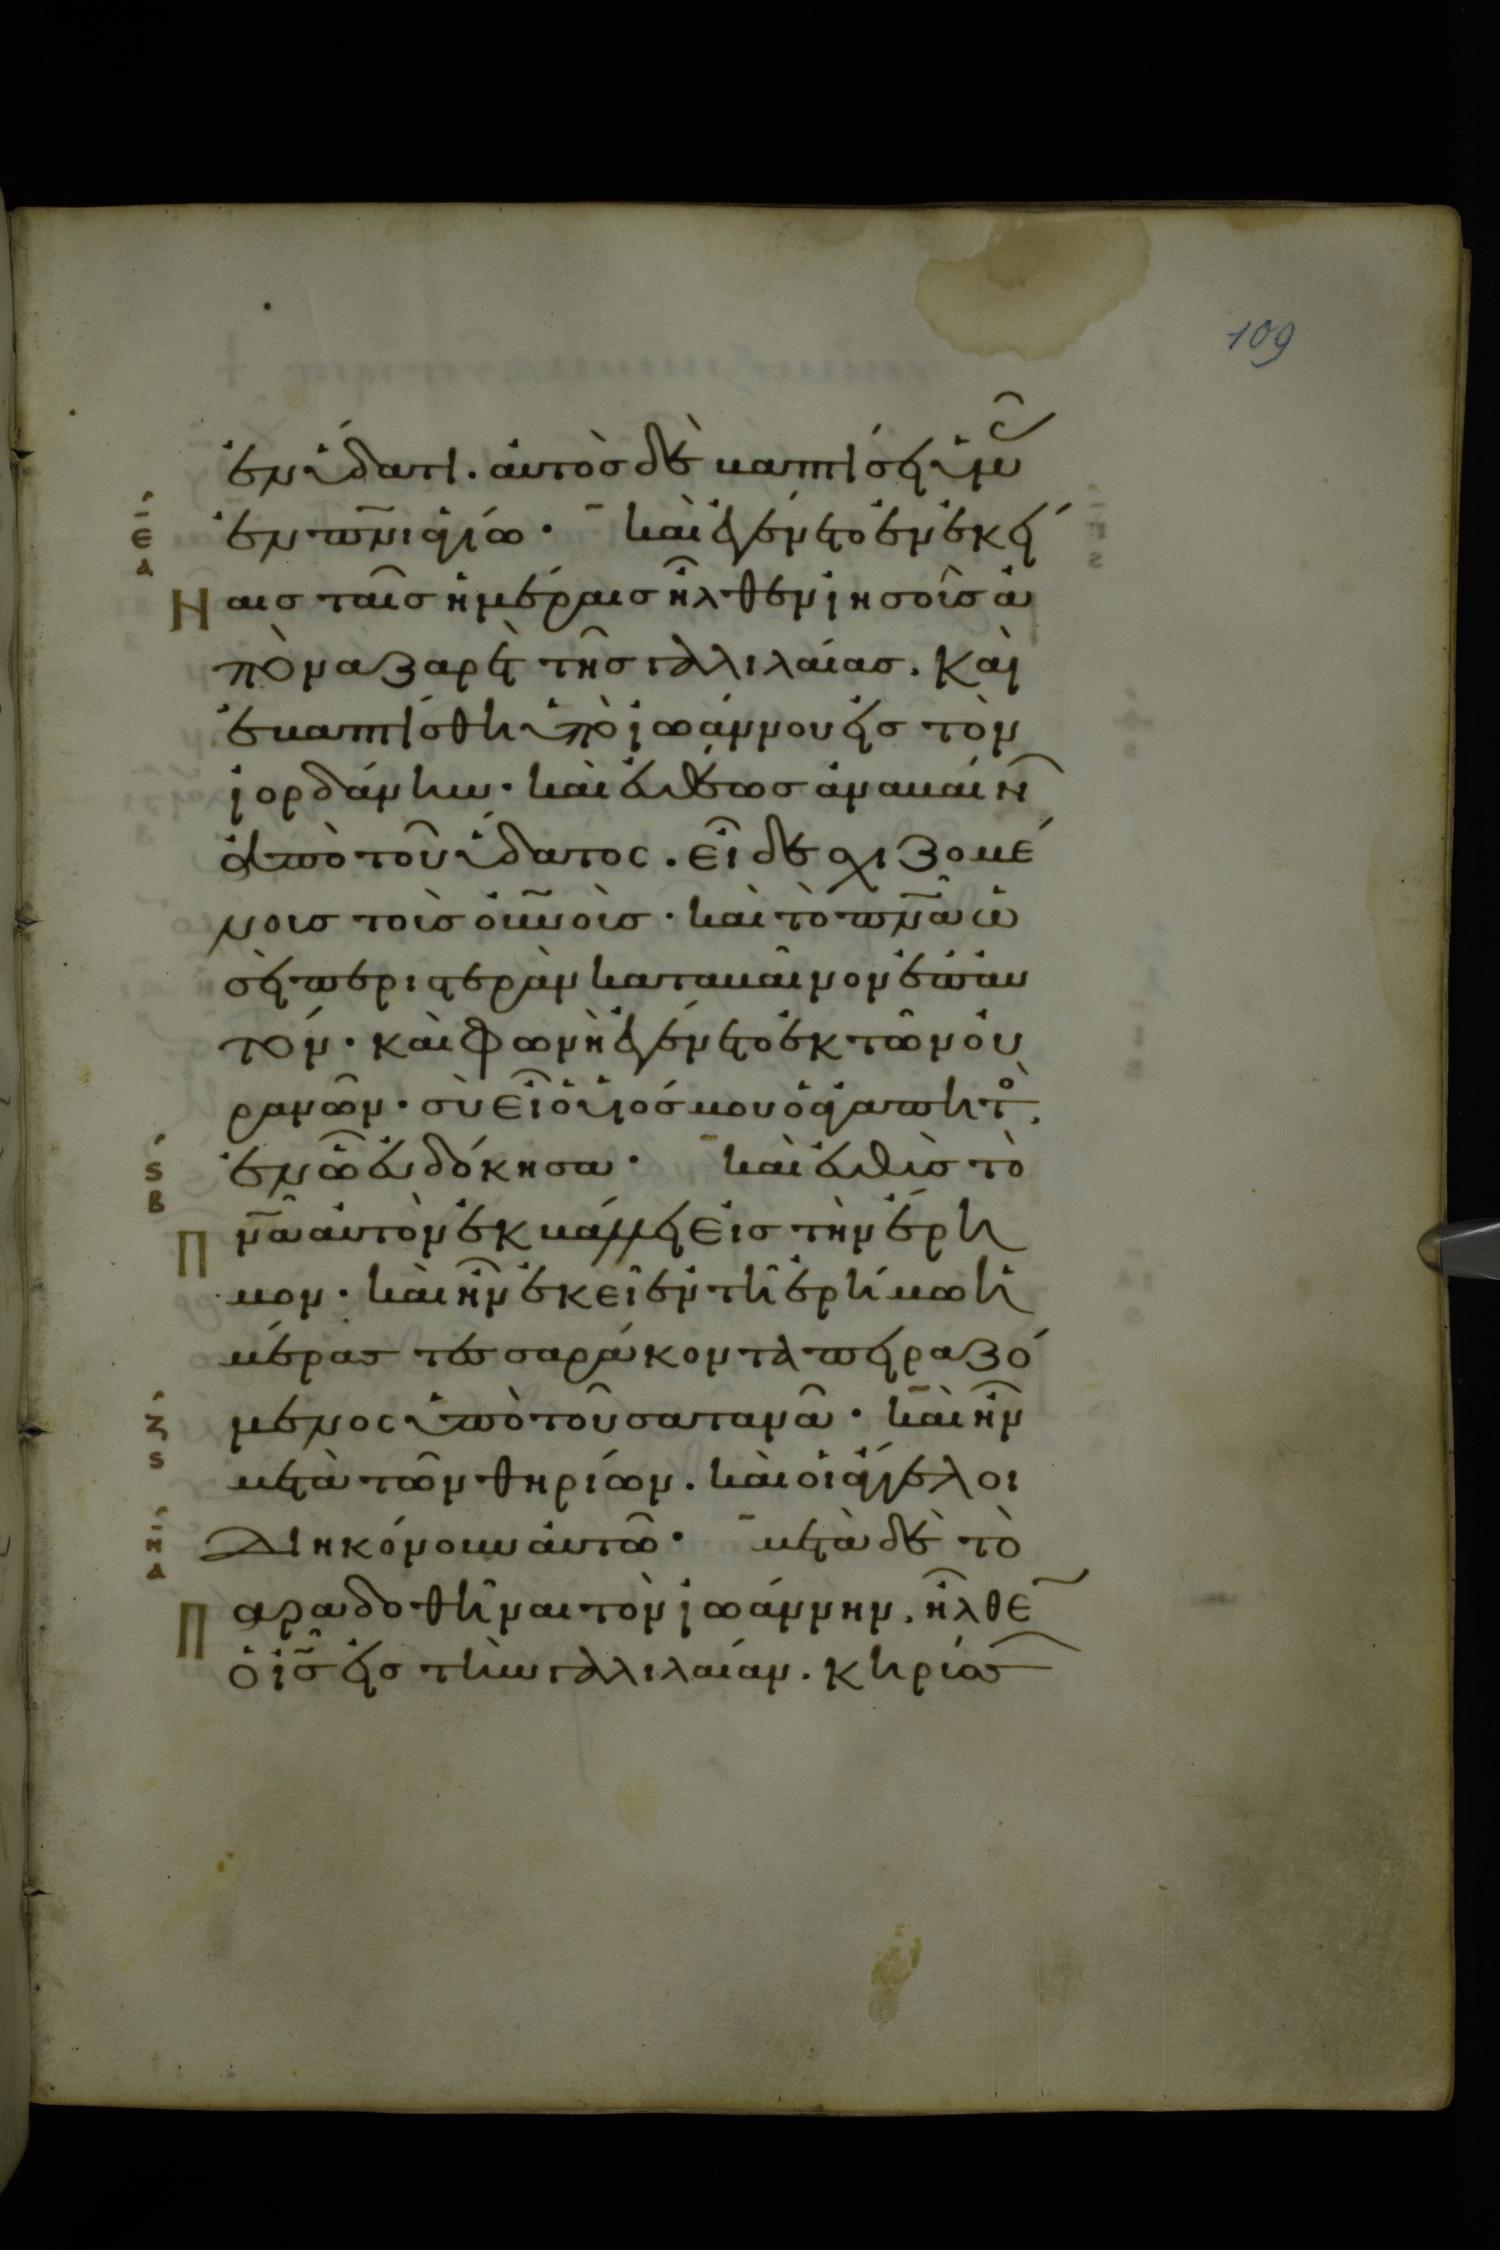 109
ἐν ὕδατι. αὐτὸσ δὲ βαπτίσει ὑμᾶσ
ἐν πνι ἁγίω. καὶ ἐγένετο ἐν ἐκεί
ε
α
Ναισ ταῖσ ἡμέραισ ἦλθεν ἰησοῦσ ἀ
πὸ ναζαρὲτ τῆσ γαλιλαίασ. καὶ
ἐβαπτίσθη ὑπὸ ἰωάννου εἰσ τὸν
ἰορδάνην. καὶ εὐθέωσ ἀναβαίνων
ἀπὸ τοῦ ὕδατος. εἶδε σχιζομέ
νοισ τοὺσ οὐνοὺσ. καὶ τὸ πνᾶ ὡ
σεὶ περιστερὰν καταβαῖνον ἐπ' αὐ
τόν. καὶ φωνὴ ἐγένετο ἐκ τῶν οὐ
ρανῶν. σὺ εἶ ὁ υἱόσ μου ὁ ἀγαπητὸ.
ἐν ὧ εὐδόκησα. καὶ εὐθὺσ τὸ
ς
β
Πνᾶ αὐτὸν ἐκβάλλει εἰσ τὴν ἔρη
μον. καὶ ἦν ἐκεῖ ἐν τῆ ἐρήμω ἡ
μέρασ τεσσαράκοντα πειραζό
μενος ὑπὸ τοῦ σατανᾶ. καὶ ἦν
ζ
ς
μετὰ τῶν θηρίων. καὶ οἱ ἄγγελοι
διηκόνουν αὐτῶ. μετὰ δὲ τὸ
η
α
Παραδοθῆναι τὸν ἰωάννην, ἦλθε
ὁ ισ εἰσ τὴν γαλιλαίαν. κηρύσ